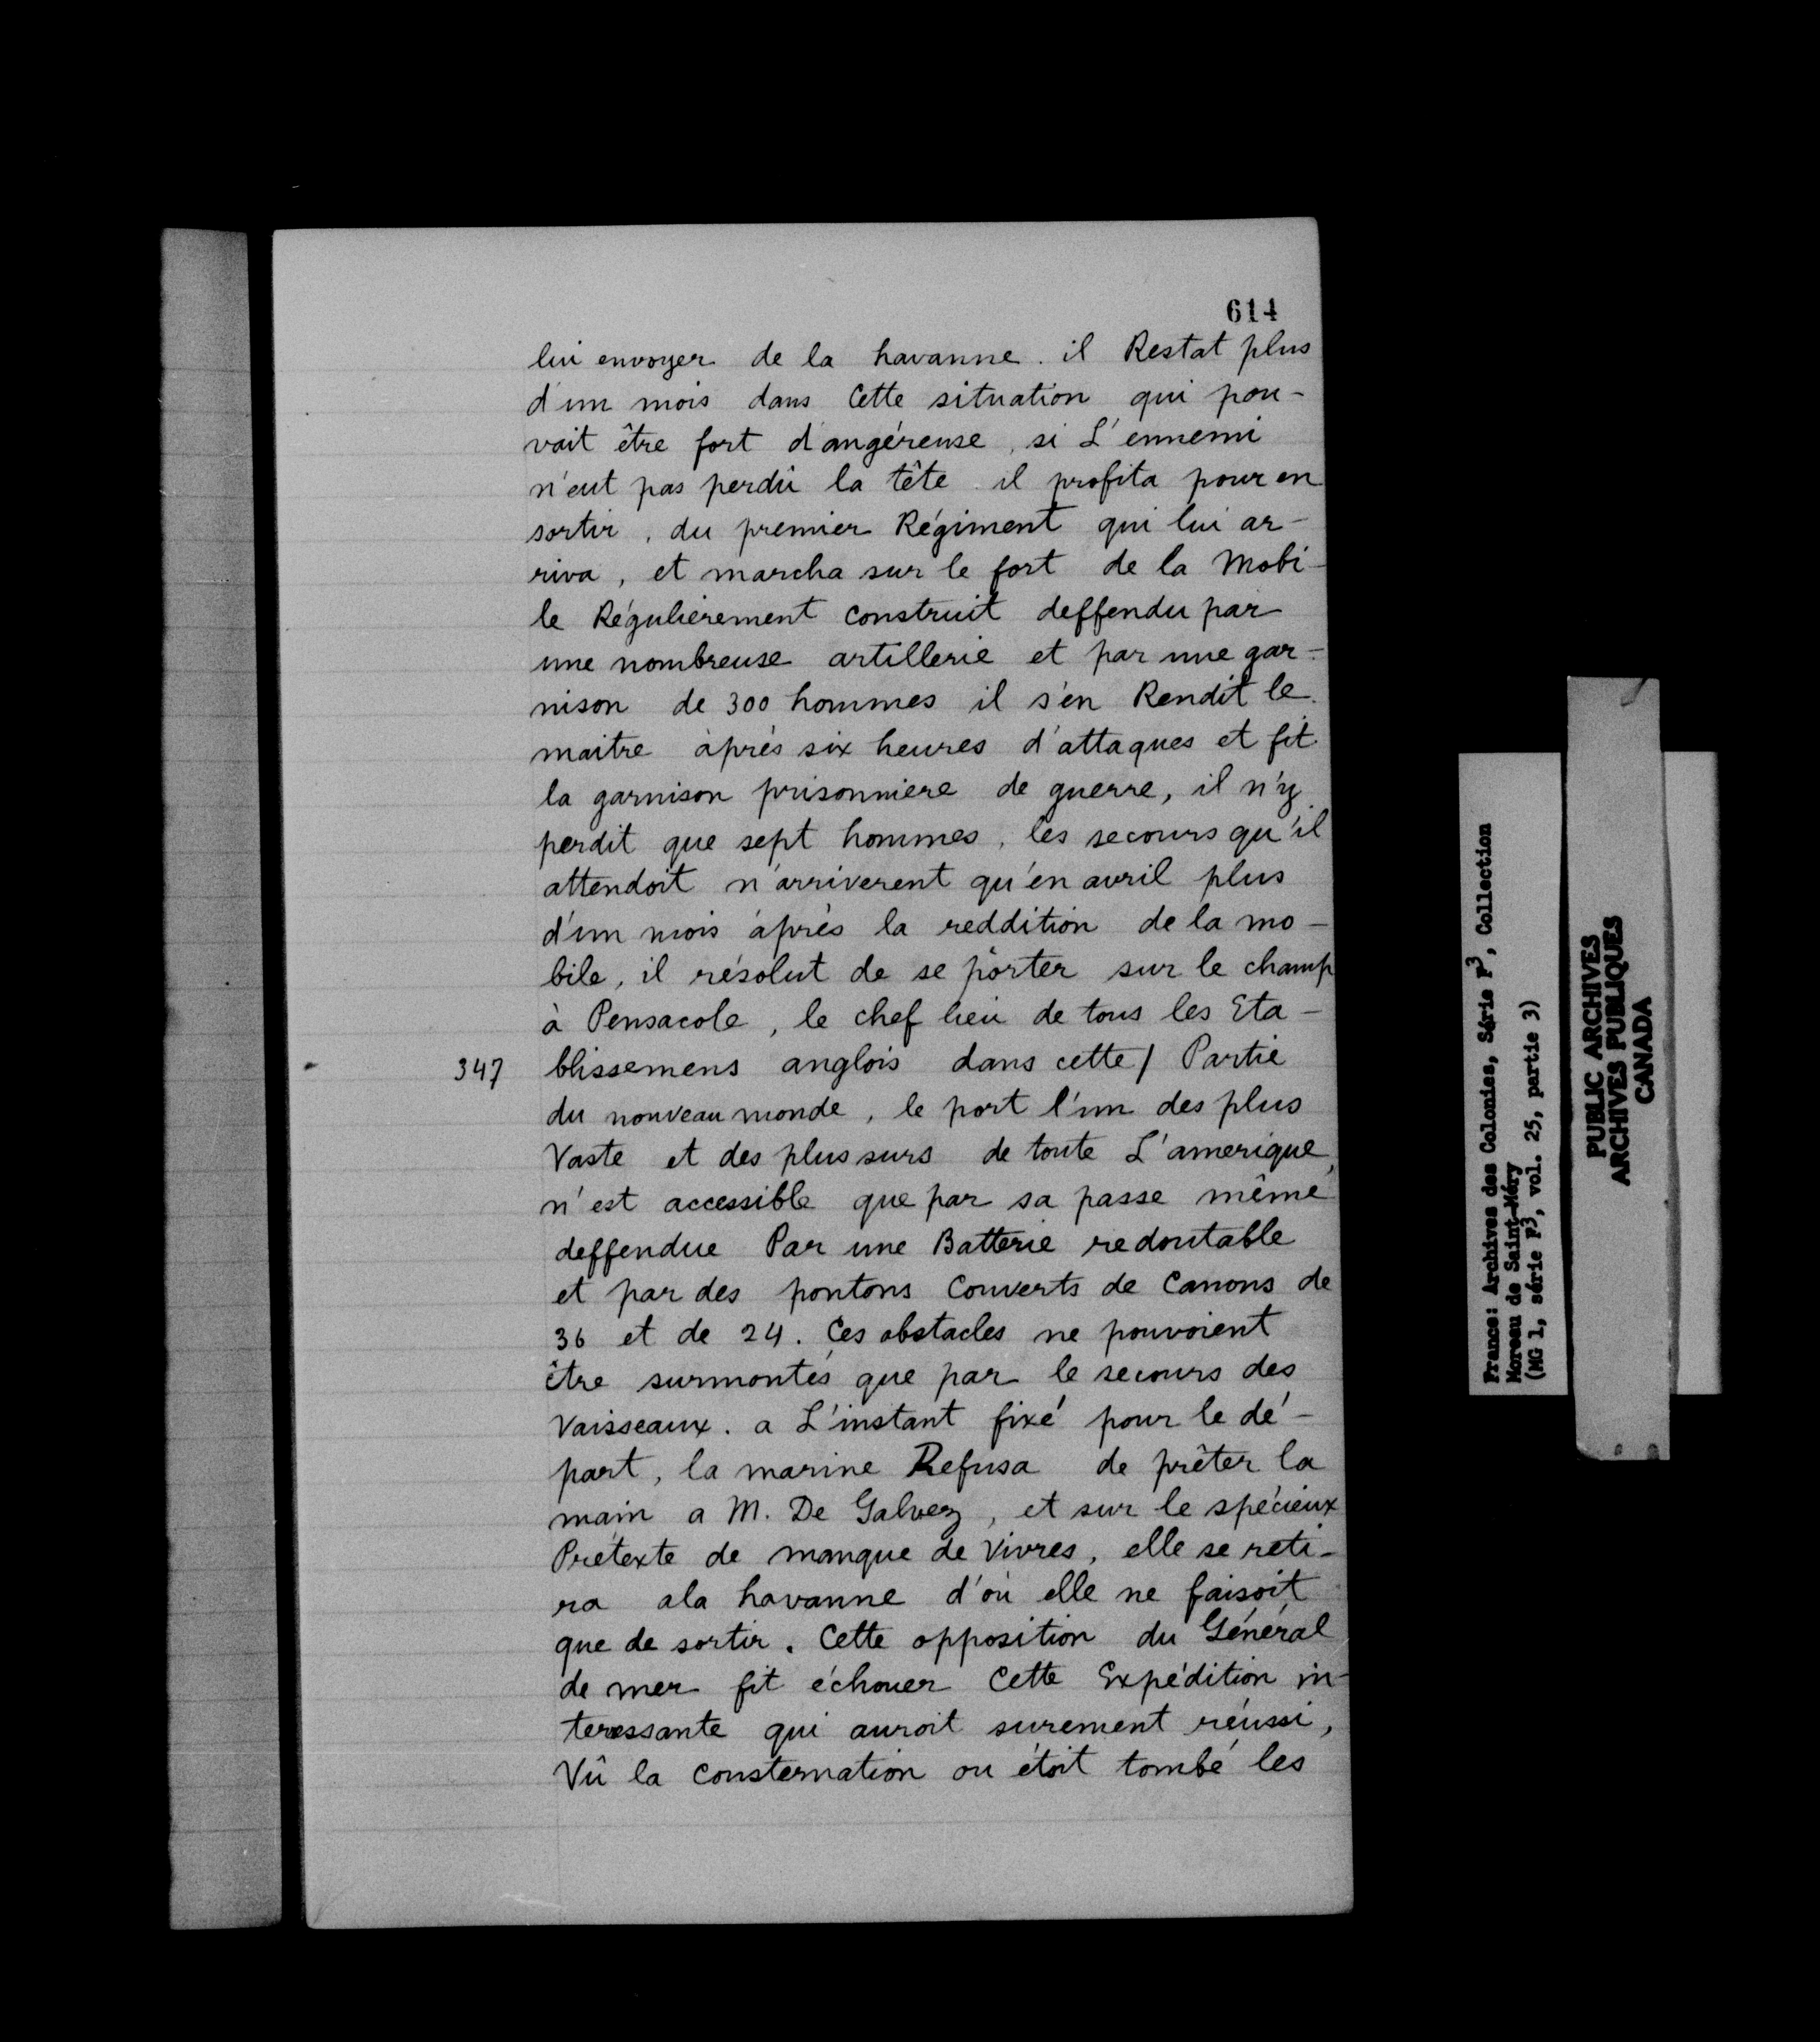 614
lui envoyer de la havanne. il Restat plus
d'un mois dans Cette situation qui pou-
vait être fort d'angéreuse, si L'ennemi
n'eut pas perdû la tête. il profita pour en
sortir, du premier Régiment qui lui ar-
riva, et marcha sur le fort de la Mobi-
le Régulièrement construit deffendu par
une nombreuse artillerie et par une gar-
nison de 300 hommes il s'en Rendit le
maitre àprès six heures d'attaques et fit
la garnison prisonniere de guerre, il n'y
perdit que sept hommes, les secours qu'il
attendoit n'arriverent qu'en avril plus
d'un mois àprès la reddition de la mo-
bile, il résolut de se pôrter sur le champ
à Pensacole, le chef lieu de tous les Eta-
347 blissemens anglois dans cette / Partie
du nouveau monde, le port l'un des plus
Vaste et des plus surs de toute L'amerique,
n'est accessible que par sa passe même
deffendue Par une Batterie redoutable
et par des pontons Couverts de Canons de
36 et de 24. Ces obstacles ne pouvoient
être surmontés que par le secours des
Vaisseaux. a L'instant fixé pour le dé-
part, la marine Refusa de prêter la
main a M. De Galvez, et sur le spécieux
Prétexte de manque de Vivres, elle se reti-
ra ala havanne d'où elle ne faisoit
que de sortir. Cette opposition du Général
de mer fit échouer Cette Expédition in-
teressante qui auroit surement réussi,
Vû la consternation ou étoit tombé les
France: Archives des Colonies, Série F3, Collection
Moreau de Saint-Méry
(MG 1, série F3, vol. 25, partie 3)
PUBLIC ARCHIVES
ARCHIVES PUBLIQUES
CANADA